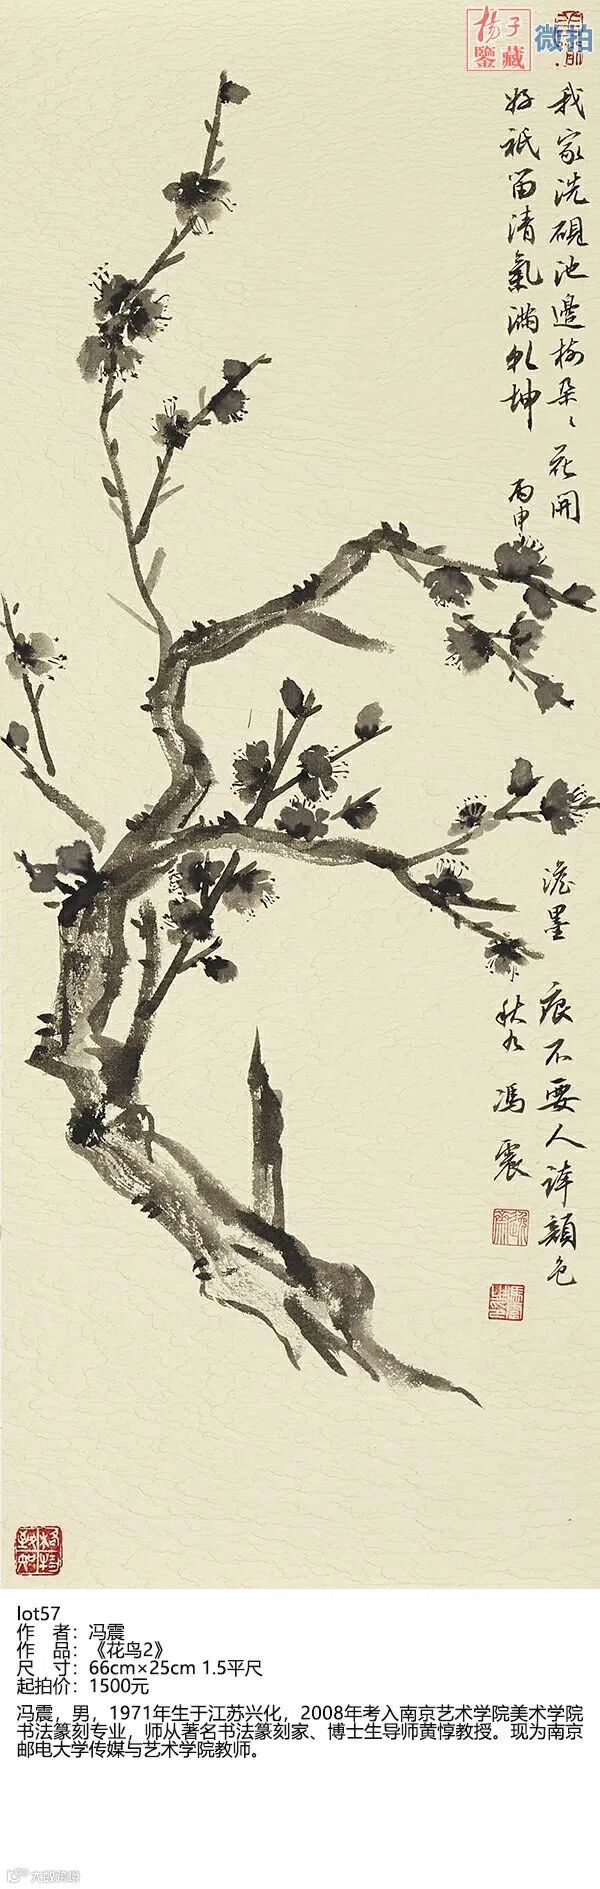 杨子
鉴藏
微拍
我家洗硯池邊樹朵〻花開
澹墨痕不要人誇顏色
好祇留清氣滿乾坤
丙申
秋九
馮震
lot57
作 者：冯震
作 品：《花鸟2》
尺 寸：66cm×25cm 1.5平尺
起拍价：1500元
冯震，男，1971年生于江苏兴化，2008年考入南京艺术学院美术学院
书法篆刻专业，师从著名书法篆刻家、博士生导师黄惇教授。现为南京
邮电大学传媒与艺术学院教师。
大数跨境